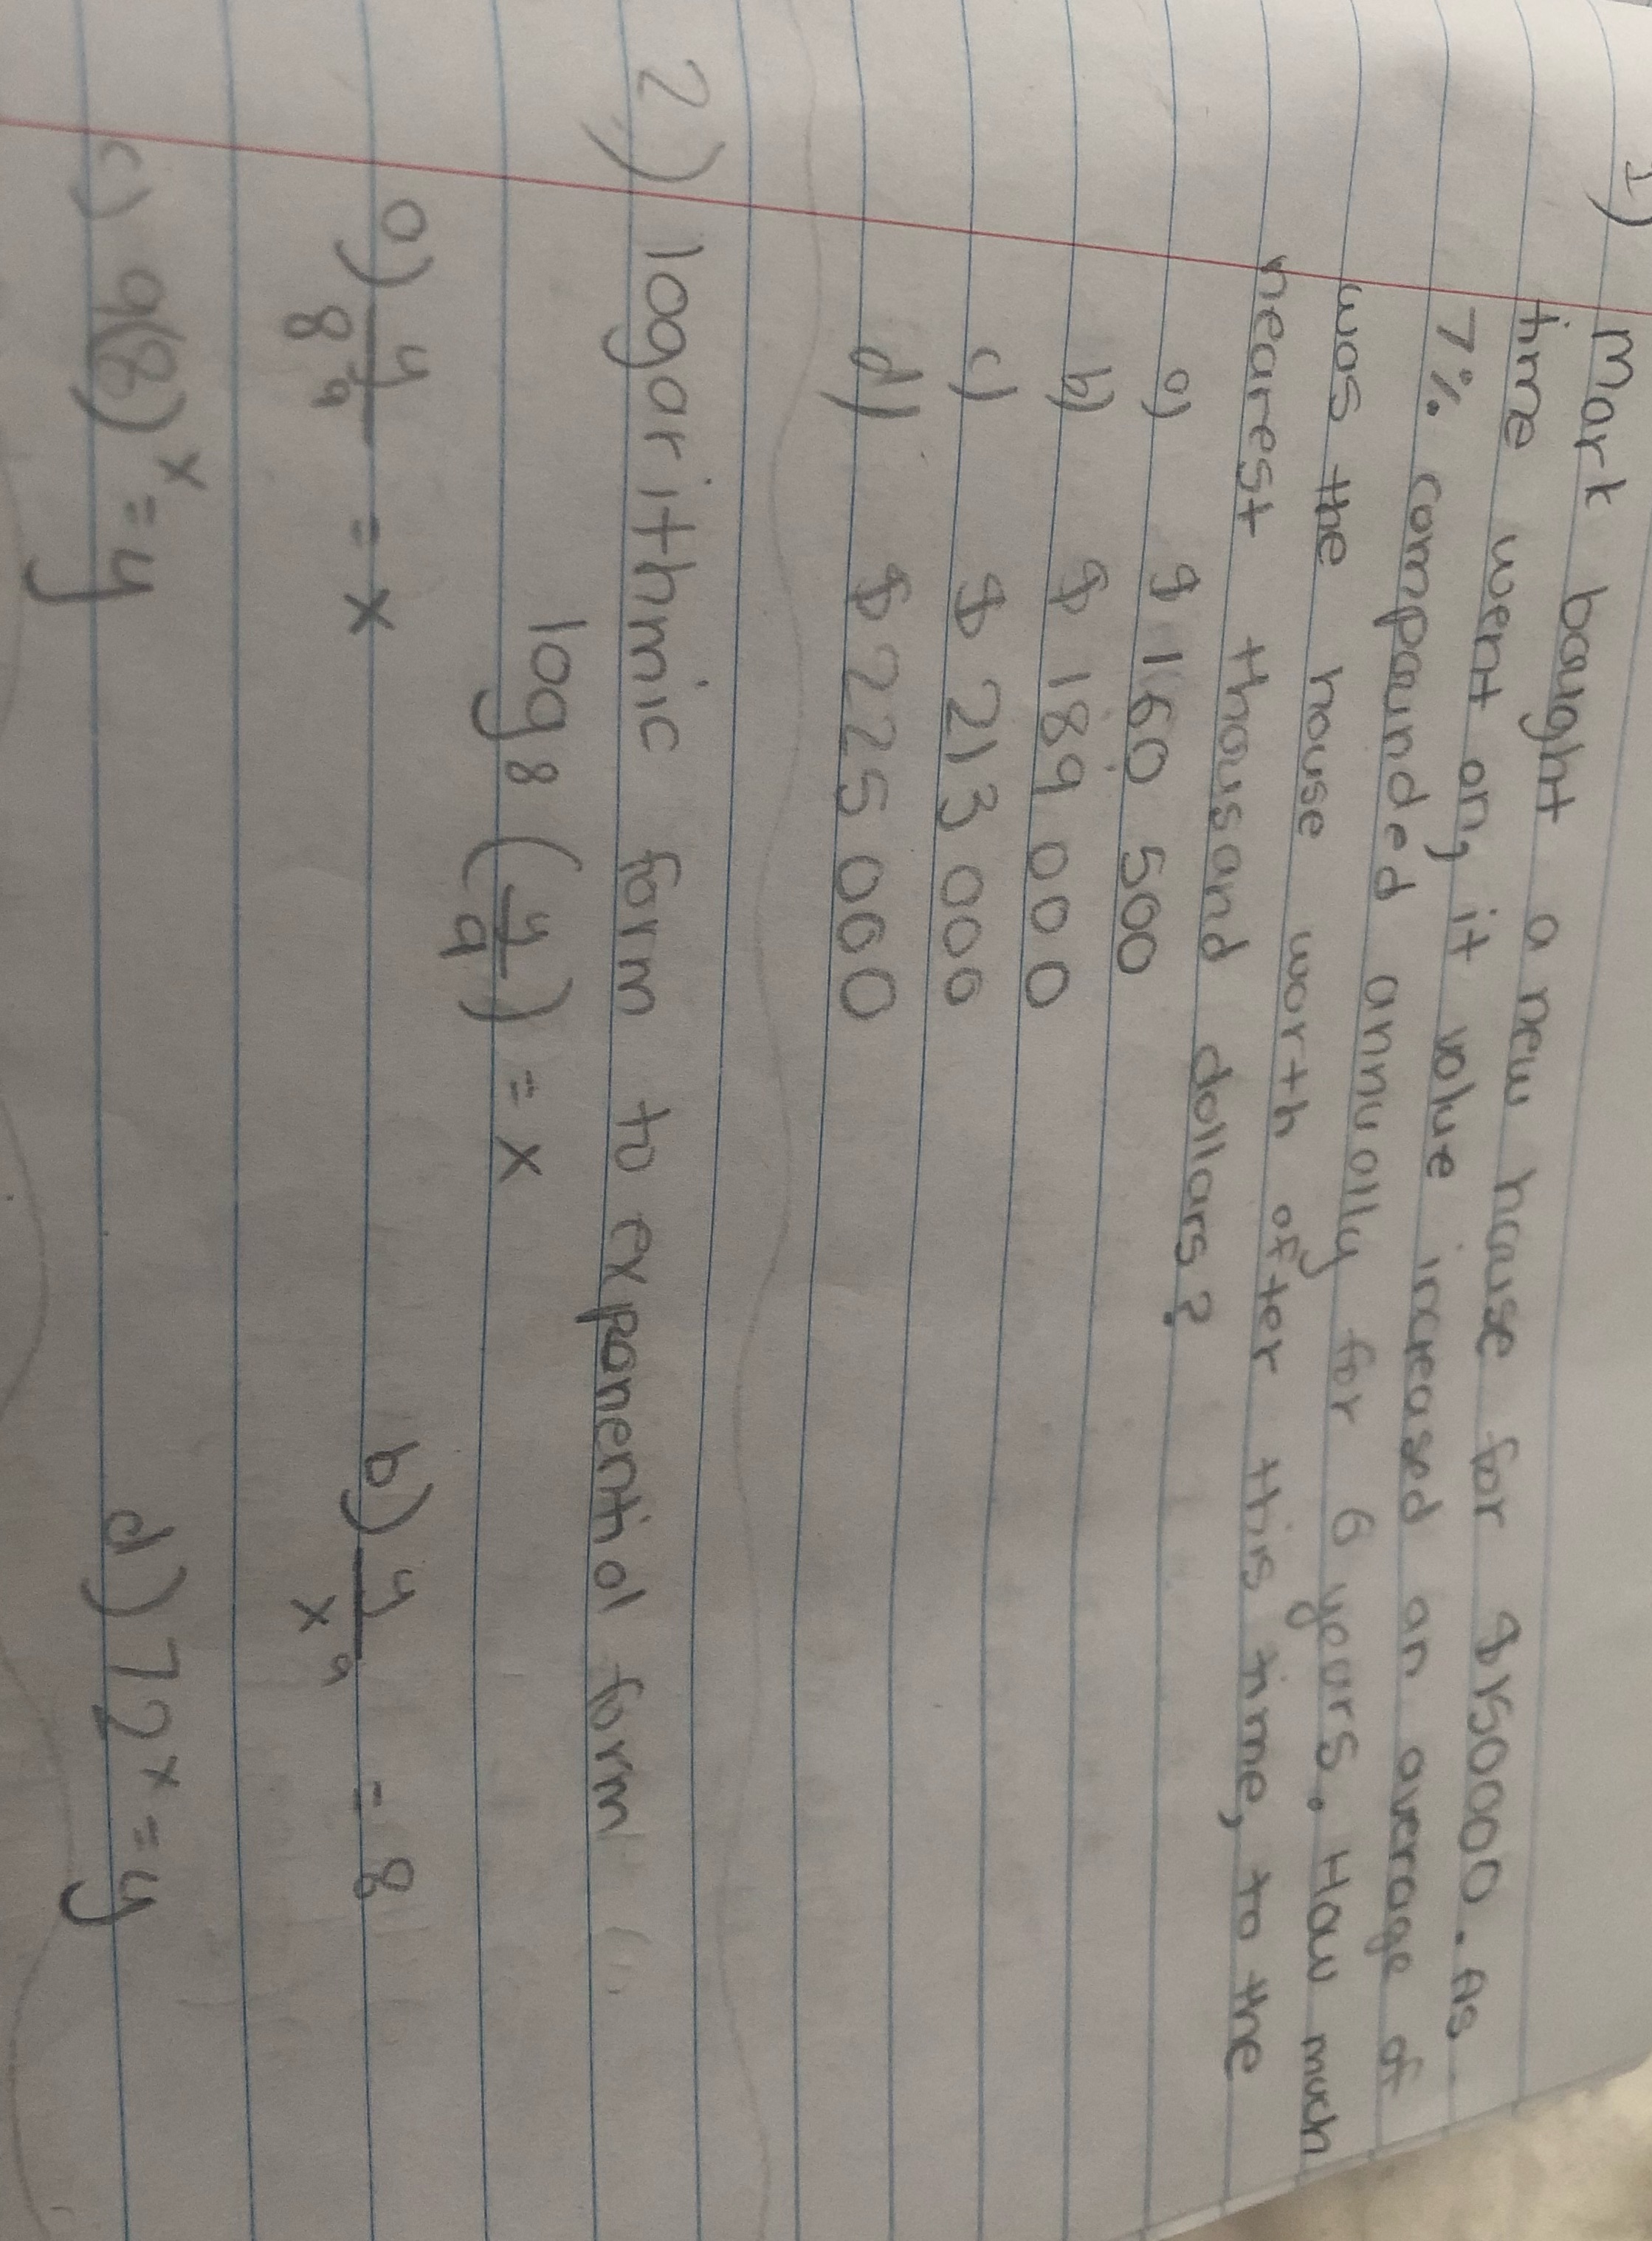 1) Mark bought a new house for $150000. As
time went on, it value increased an average of
7% compounded annually for 6 years. How much
was the house worth after this time, to the
nearest thousand dollars?
a) $ 160 500
b) $ 189 000
c) $ 213 000
d) $ 225 000
2) logarithmic form to exponential form
log 8 (y/9) = x
a) y/8^9 = x b) y/x^9 = 8
c) 9(8)^x = y d) 72^x = y